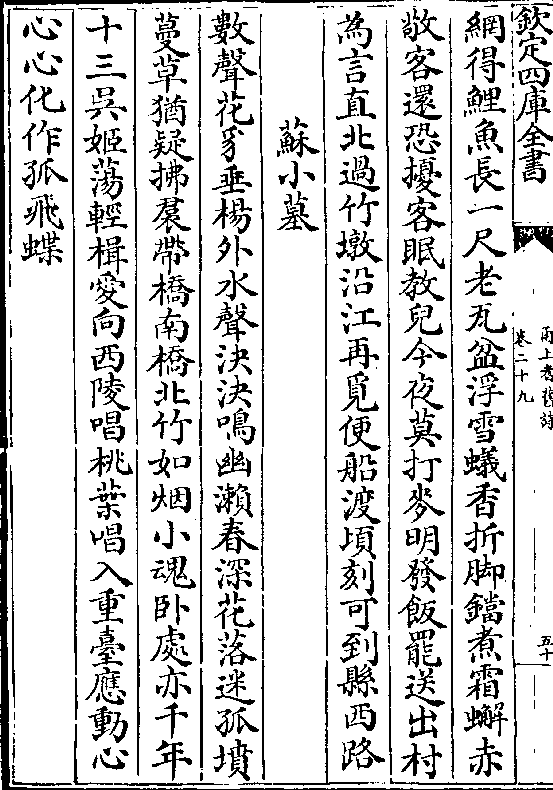 欽定四庫全書
甬上耆舊詩
卷二十九
五十
網得鯉魚長一尺老瓦盆浮雪蟻香折脚鐺煮霜蠏赤
敬客還恐擾客眠教兒今夜莫打麥明發飯罷送出村
為言直北過竹墩沿江再覓便船渡頃刻可到縣西路
蘇小墓
數聲花豸垂楊外水聲決決鳴幽瀨春深花落迷孤墳
蔓草猶疑拂裠帶橋南橋北竹如烟小魂卧處亦千年
十三吳姬蕩輕楫愛向西陵唱桃葉唱入重臺應動心
心心化作孤飛蝶